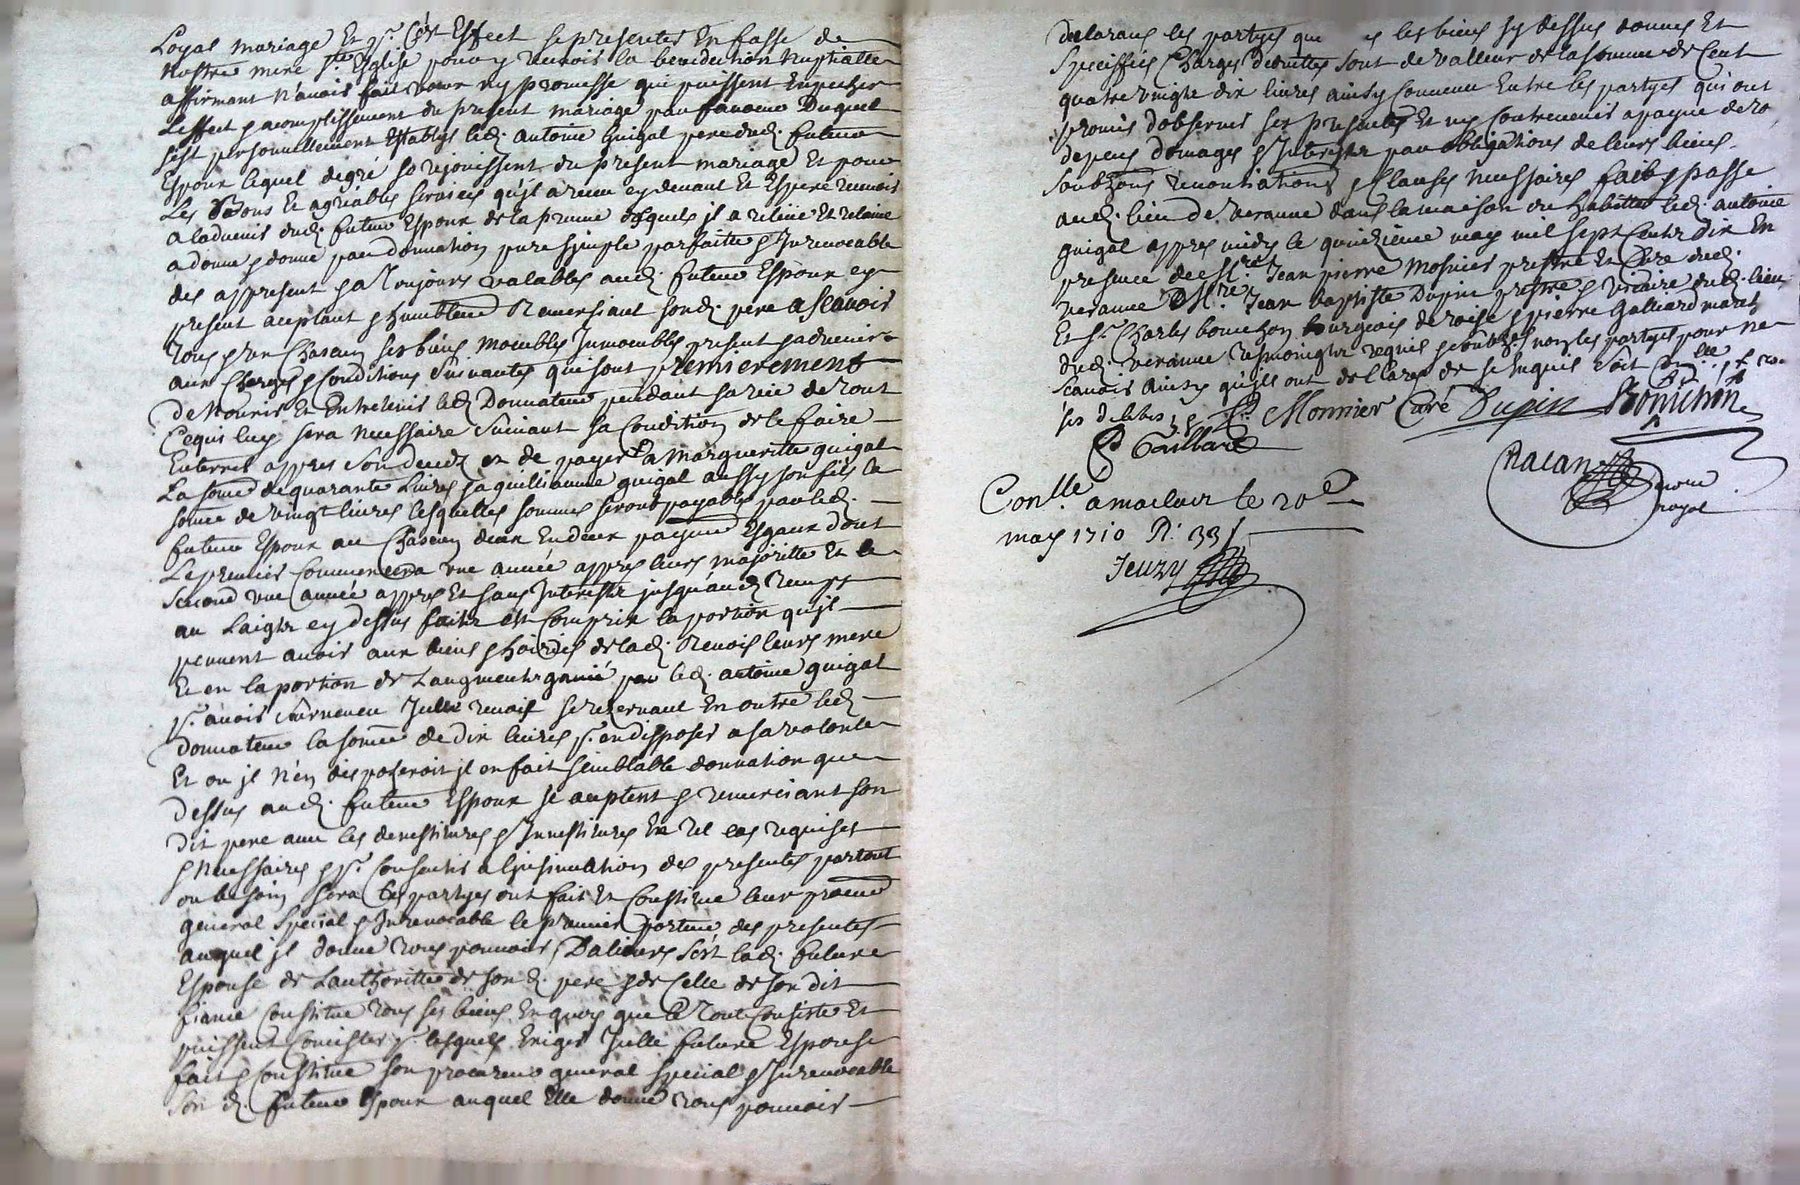 Loyal mariage Et pr. Cést Effect se presenter En fasse de
nostre mere Ste Eglise pour y recevoir la benediction Nuptialle
affirmant n'avoir fait vœux ny promesse qui puissent Empecher
Leffect & acomplissement du present mariage par faveur Duquel
sest personnellement Establys led. antoine guigal pere dud. futeur
Espoux lequel degré se rejouissent du present mariage Et pour
Les Bons Et agréables services qu'jl a receu cy devant Et Espere recevoir
a ladvenir dud. futeur Espoux de la preuve desquels jl a relevé Et releve
a donne & donne par donnation pure simple parfaitte & Jrrevocable
des appresent & a Toujours valables aud. futeur Espoux cy
present aceptant & humblemt Remersiant sond. pere a scavoir
Tous & un Chascun ses biens meubles Jmmeubles present & advenir
aux Charges & Conditions Suivantes qui sont premierement
De Nourir Et Entretenir led. Donnateur pendant sa vie de tout
Ce qui luy sera necessaire Suivant sa Condition de le faire
Enterrer appres Son decedz et de payer a marguerite guigal
La some de quarante Livres & a guilliaume guigal aussy son fils la
some de vingt livres lesquelles sommes seront payables par led.
futeur Espoux au Chascun deux En deux payement Esgaux dont
Le premier Commencera une année appres leurs majoritte Et le
second une année appres Et sans Jnterestz jusqu'aud. temps
au Laigtz cy dessus faitz est Comprix la portion qu'jls
peuvent avoir aux biens & hoirie de lad. Renoir leurs mere
Et en la portion de Laugment gaigné par led. antoine guigal
pr. avoir survescu Jcelle renoir se reservant En outre led.
Donnateur la some de dix livres pr. en disposer a sa volonte
Et ou jl n'en disposeroit jl en fait semblable donnation que
dessus aud. futeur Espoux Je aceptent & remerciant son
dit pere avec les devestitures & Jnvestitures En tel cas requises
& necessaires & pr. Consentir a l'insinuation des presentes partout
ou besoin sera les partyes ont fait Et Constitué leur procureur
general special & Jrrevocable le premier porteur des presentes
auquel jl donne tous pouvoirs Dalieurs sést lad. future
Espouse de Lauthoritte de son d. pere & de Celle de son dit
fiancé Constitue tous ses biens En quoy que le tout Consiste Et
puissent Concister pr. lesquels Exiger Jcelle future Espouse
fait & Constitue son procureur general special & Jrrevocable
son d. futeur Espoux auquel Elle donne tous pouvoir
declarans les partyes que les biens sy dessus donnés Et
speciffiés Charges deduittes sont de valleur de la somme de Cent
quatre vingtz dix livres ainsy Convenu Entre les partyes qui ont
promis dobserver ses presentes Et ny Contrevenir a payne de to
depens domages & Jnterestz par obligations de leurs biens
soubzons renontiations & Clauses necessaires fait & passe
aud. lieu de veranne dans la maison du habitte led. antoine
guigal appres midy le quinzieme may mil sept Centz dix En
presence de Mre Jean pierre mosnier prestre Et Cure dud.
veranne Mre Jean baptiste Dupin prestre & vicaire dud. lieu
Et Sr. Charles bonichon bourgeois de & pierre Galliard marchand
dud. veranne tesmoingtz requis & soubznes non les partyes pour ne
scavoir ainsy qu'jls ont declaré de se Enquis Soit Conlle
ses
Monnier Curé Dupin Bonichon
P Gaillard
Racan
notre
royal
Conllé a maclair le 20e
may 1710 R: 33
Jeuzy